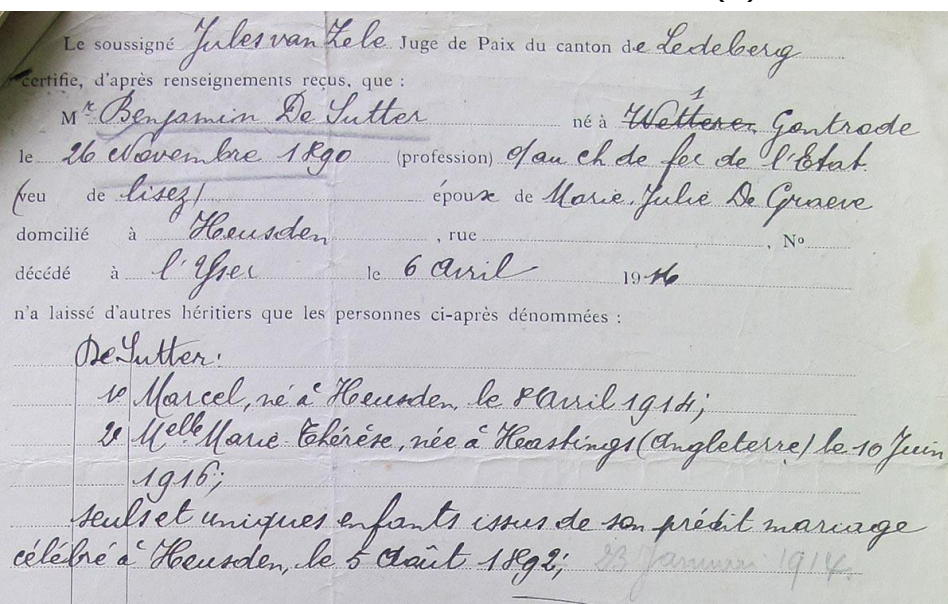 Le soussigné Jules van Zele Juge de Paix du canton de Ledeberg
certifie, d'après renseignements reçus, que :
Mr Benjamin De Sutter né à Wetteren Gontrode
le 26 Novembre 1890 (profession) au ch de fer de l'Etat
(veu de lisez) époux de Marie Julie De Graeve
domicilié à Heusden, rue , No
décédé à l'Yser le 6 Avril 1916
n'a laissé d'autres héritiers que les personnes ci-après dénommées :
De Sutter:
1o Marcel, né à Heusden, le 8 Avril 1914;
2o Melle Marie Thérèse, née à Heastings (Angleterre) le 10 Juin
1916;
seuls et uniques enfants issus de son prédit mariage
célébré à Heusden, le 5 Août 1892; 23 Januari 1914.